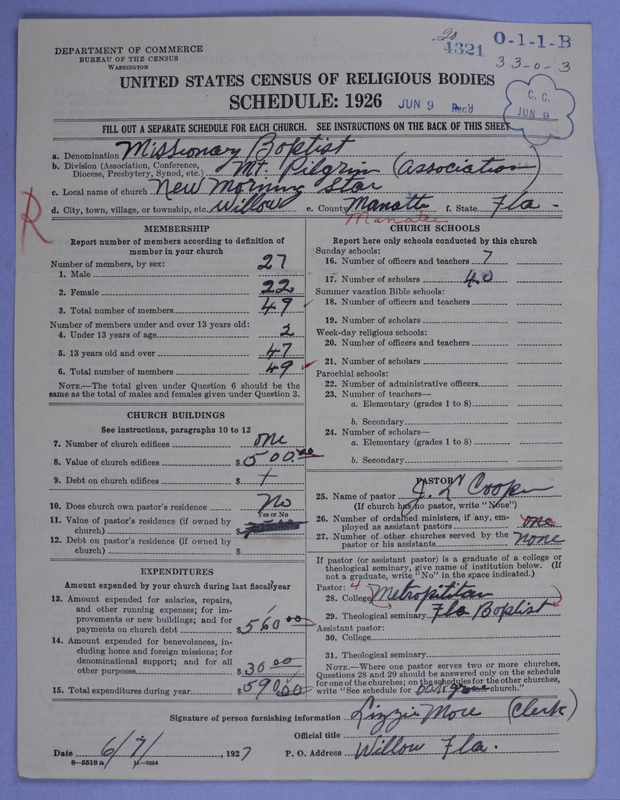 DEPARTMENT OF COMMERCE
BUREAU OF THE CENSUS
WASHINGTON
20
4321
O-1-1-B
33-0-3
UNITED STATES CENSUS OF RELIGIOUS BODIES
SCHEDULE: 1926
JUN 9 Rec'd
C. C.
JUN 9
FILL OUT A SEPARATE SCHEDULE FOR EACH CHURCH. SEE INSTRUCTIONS ON THE BACK OF THIS SHEET
a. Denomination Missionary Boptist
b. Division (Association, Conference, Diocese, Presbytery, Synod, etc.) Mt. Pilgrim (Association)
c. Local name of church New Morning Star
d. City, town, village, or township, etc. Willow e. County Manatte f. State Fla -
Manatee
R
MEMBERSHIP
Report number of members according to definition of member in your church
Number of members, by sex:
1. Male 27
2. Female 22
3. Total number of members 49
Number of members under and over 13 years old:
4. Under 13 years of age 2
5. 13 years old and over 47
6. Total number of members 49
NOTE.—The total given under Question 6 should be the same as the total of males and females given under Question 3.
CHURCH BUILDINGS
See instructions, paragraphs 10 to 12
7. Number of church edifices one
8. Value of church edifices $ 500.00
9. Debt on church edifices $
10. Does church own pastor's residence No
Yes or No
11. Value of pastor's residence (if owned by church)
12. Debt on pastor's residence (if owned by church) $
EXPENDITURES
Amount expended by your church during last fiscal year
13. Amount expended for salaries, repairs, and other running expenses; for improvements or new buildings; and for payments on church debt $ 560 00
14. Amount expended for benevolences, including home and foreign missions; for denominational support; and for all other purposes $ 30 00
15. Total expenditures during year $ 590 00
CHURCH SCHOOLS
Report here only schools conducted by this church
Sunday schools:
16. Number of officers and teachers 7
17. Number of scholars 40
Summer vacation Bible schools:
18. Number of officers and teachers
19. Number of scholars
Week-day religious schools:
20. Number of officers and teachers
21. Number of scholars
Parochial schools:
22. Number of administrative officers
23. Number of teachers—
a. Elementary (grades 1 to 8)
b. Secondary
24. Number of scholars—
a. Elementary (grades 1 to 8)
b. Secondary
PASTOR
25. Name of pastor J. W Cooper
(If church has no pastor, write "None")
26. Number of ordained ministers, if any, employed as assistant pastors one
27. Number of other churches served by the pastor or his assistants none
If pastor (or assistant pastor) is a graduate of a college or theological seminary, give name of institution below. (If not a graduate, write "No" in the space indicated.)
Pastor:
28. College Metropilitan
29. Theological seminary Fla Boptist
Assistant pastor:
30. College
31. Theological seminary
NOTE.—Where one pastor serves two or more churches, Questions 28 and 29 should be answered only on the schedule for one of the churches; on the schedules for the other churches, write "See schedule for church."
Signature of person furnishing information Lizzie More (Clerk)
Official title
Date 6/7/, 1927 P. O. Address Willow Fla.
8-5518a 11-9064